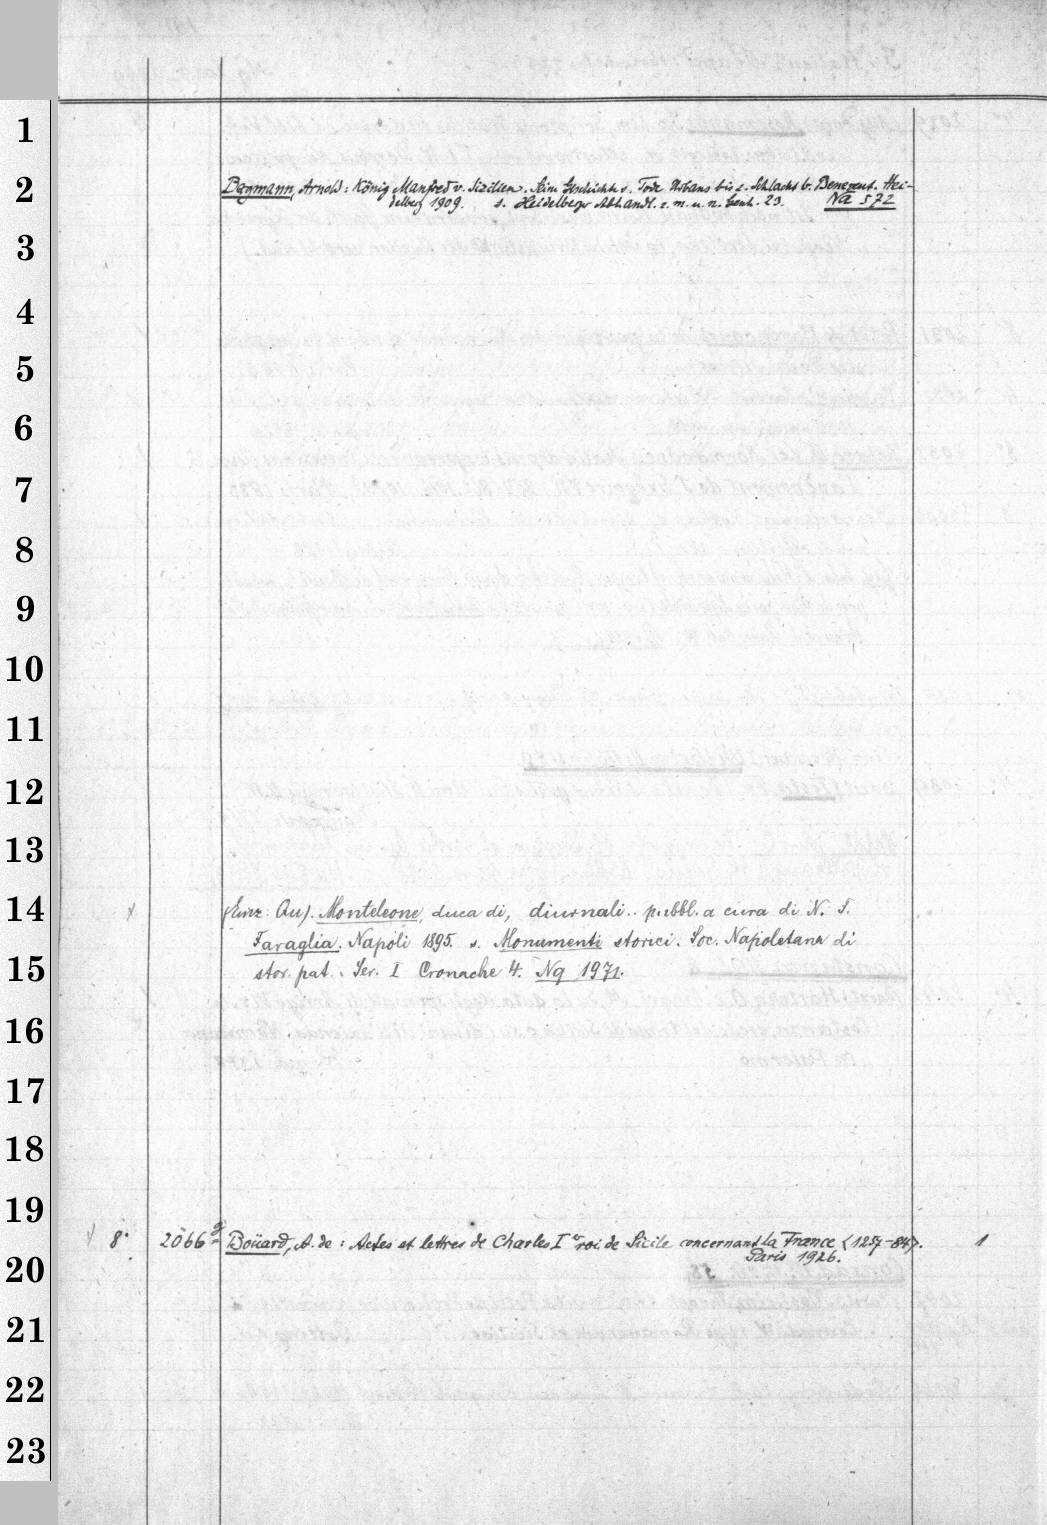 1
2
Bergmann, Arnold: König Manfred v. Sizilien. Seine Geschichte v. Tode Urbans bis z. Schlacht b. Benevent. Hei-
delberg 1909. s. Heidelberger Abhandl. z. m. u. n. Gesch. 23. Na 572
3
4
5
6
7
8
9
10
11
12
13
14
(Einz. Au). Monteleone, duca di, diurnali.. pubbl. a cura di N. F.
Faraglia. Napoli 1895. s. Monumenti storici. Soc. Napoletana di
15
stor. pat. Ser. I Cronache 4. Nq 1971.
16
17
18
19
8° 2066 Boüard, A. de: Actes et lettres de Charles Ier roi de Sicile concernant la France <1257-84>. 1
Paris 1926.
20
21
22
23